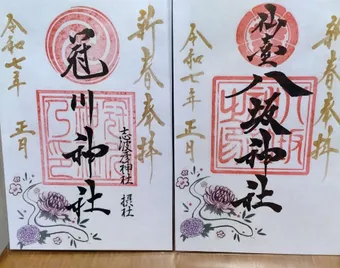 新春奉拝
仙臺八坂神社
令和七年 正月
新春奉拝
冠川神社
志波彦神社 摂社
令和七年 正月